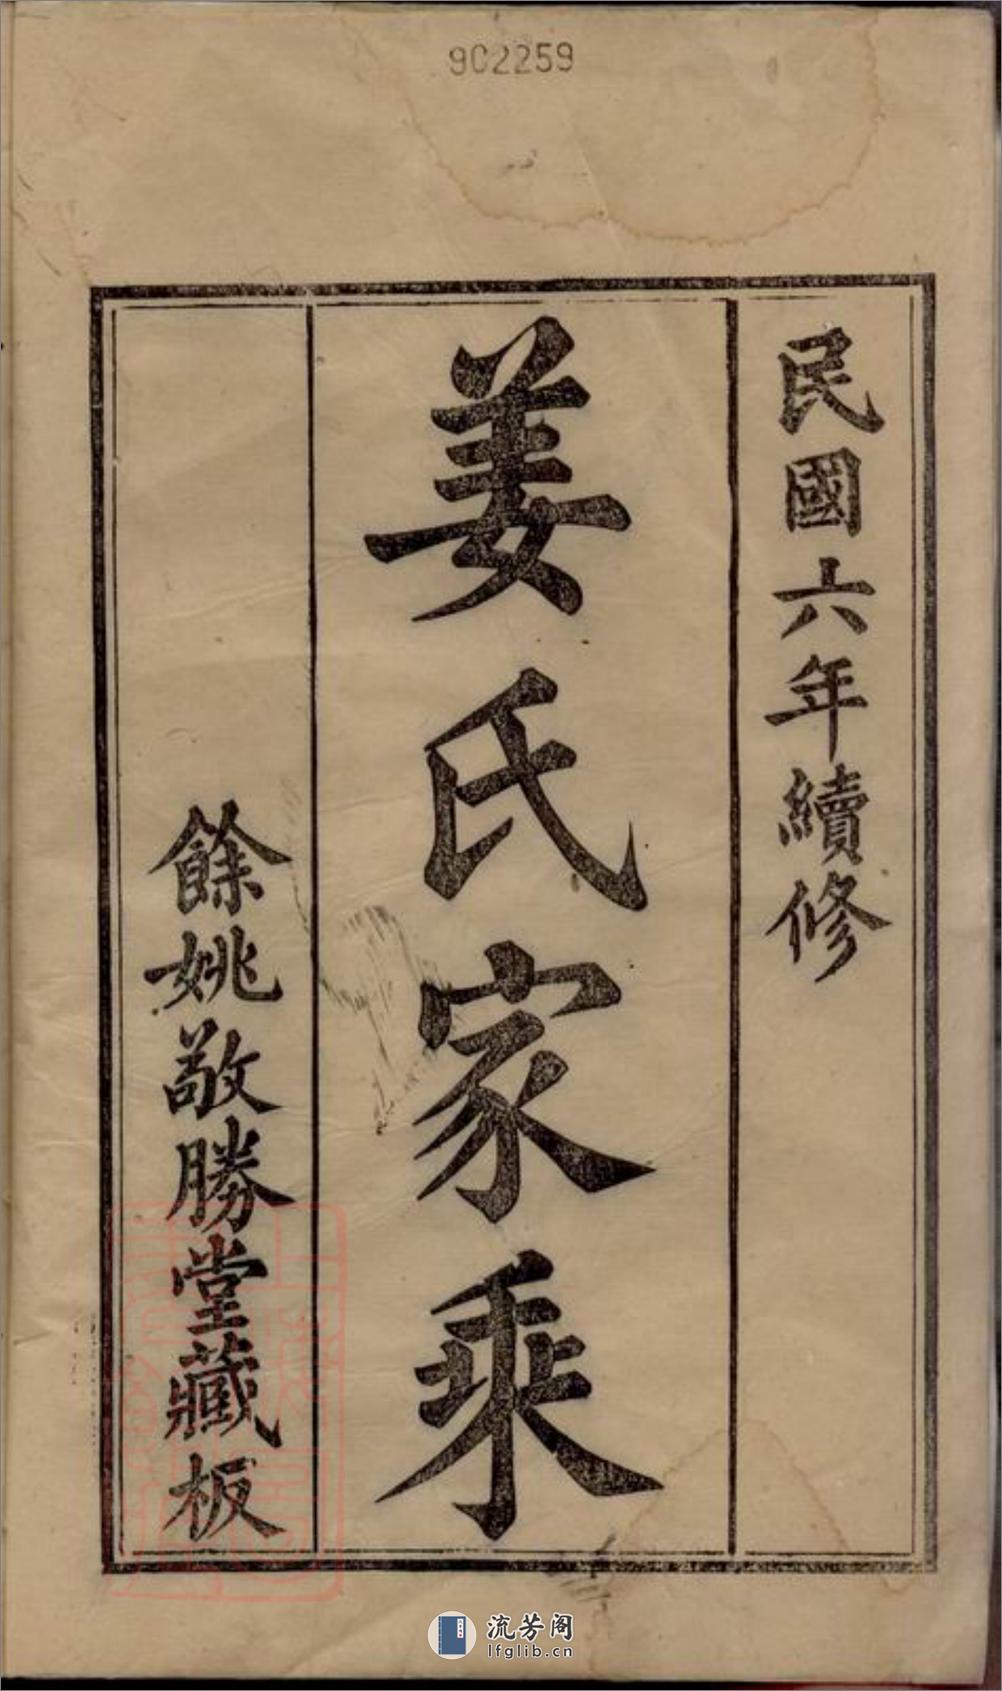 902259
民國六年續修
姜氏家乘
餘姚敬勝堂藏板
流芳阁
lfglib.cn